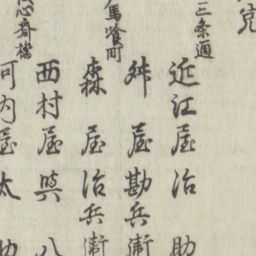 三条通
近江屋治助
舛屋勘兵衛
馬喰町
森屋治兵衛
西村屋與八
心斎橋
河内屋太助